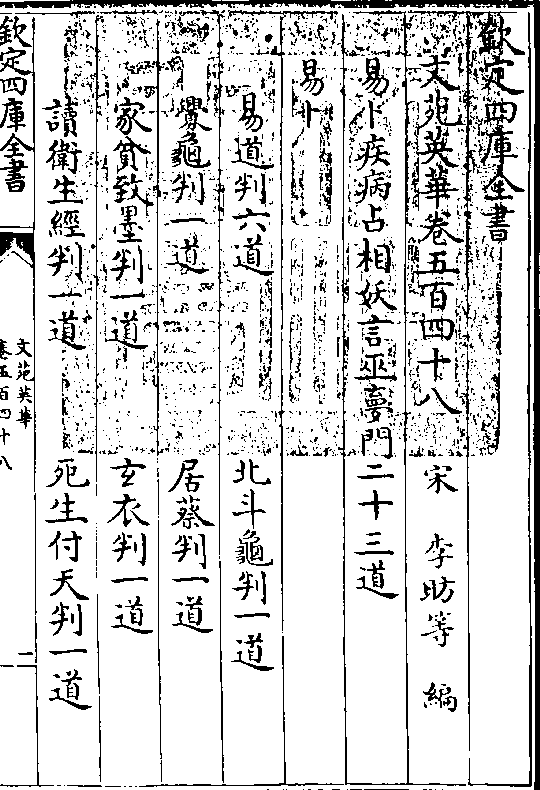 欽定四庫全書
文苑英華卷五百四十八 宋 李昉等 編
易卜疾病占相妖言巫夢門二十三道
易卜
易道判六道 北斗龜判一道
釁龜判一道 居蔡判一道
家貧致墨判一道 玄衣判一道
讀衛生經判一道 死生付天判一道
欽定四庫全書
文苑英華
卷五百四十八
二